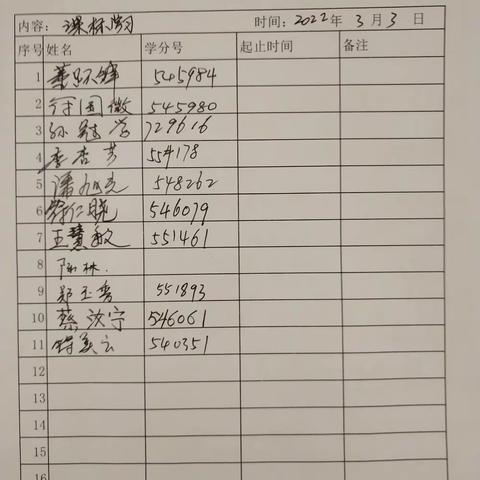 内容: 课标学习 时间: 2022年 3月 3日
序号 姓名 学分号 起止时间 备注
1 545984
2 545980
3 孙 729616
4 李杏芳 554178
5 潘旭亮 548262
6 仁晓 546079
7 王慧敏 551461
8 陈林.
9 郑玉秀 551893
10 蔡汝宁 546061
11 美云 540351
12
13
14
15
16